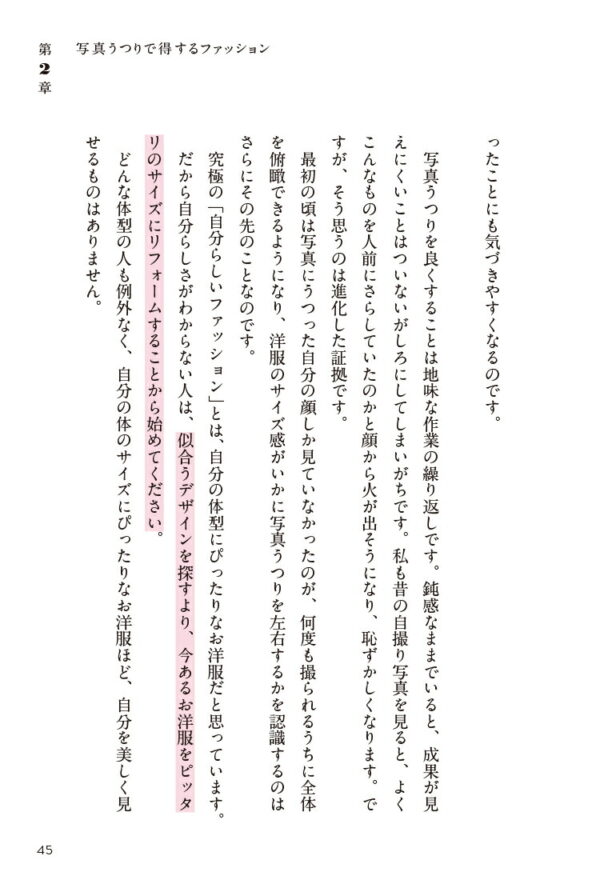 第2章　写真うつりで得するファッション
ったことにも気づきやすくなるのです。
写真うつりを良くすることは地味な作業の繰り返しです。鈍感なままでいると、成果が見
えにくいことはついないがしろにしてしまいがちです。私も昔の自撮り写真を見ると、よく
こんなものを人前にさらしていたのかと顔から火が出そうになり、恥ずかしくなります。で
すが、そう思うのは進化した証拠です。
最初の頃は写真にうつった自分の顔しか見ていなかったのが、何度も撮られるうちに全体
を俯瞰できるようになり、洋服のサイズ感がいかに写真うつりを左右するかを認識するのは
さらにその先のことなのです。
究極の「自分らしいファッション」とは、自分の体型にぴったりなお洋服だと思っています。
だから自分らしさがわからない人は、似合うデザインを探すより、今あるお洋服をピッタ
リのサイズにリフォームすることから始めてください。
どんな体型の人も例外なく、自分の体のサイズにぴったりなお洋服ほど、自分を美しく見
せるものはありません。
45